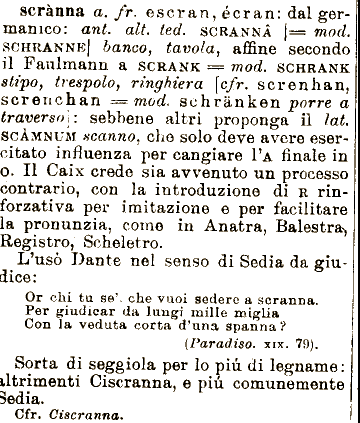 scrànna a. fr. escran, écran: dal ger-
manico: ant. alt. ted. SCRANNÂ [= mod.
SCHRANNE] banco, tavola, affine secondo
il Faulmann a SCRANK = mod. SCHRANK
stipo, trespolo, ringhiera [cfr. screnhan,
screnchan = mod. schränken porre a
traverso]: sebbene altri proponga il lat.
SCÀMNUM scanno, che solo deve avere eser-
citato influenza per cangiare l'A finale in
O. Il Caix crede sia avvenuto un processo
contrario, con la introduzione di R rin-
forzativa per imitazione e per facilitare
la pronunzia, come in Anatra, Balestra,
Registro, Scheletro.
L'usò Dante nel senso di Sedia da giu-
dice:
Or chi tu se', che vuoi sedere a scranna.
Per giudicar da lungi mille miglia
Con la veduta corta d'una spanna?
(Paradiso. XIX. 79).
Sorta di seggiola per lo piú di legname:
altrimenti Ciscranna, e piú comunemente
Sedia.
Cfr. Ciscranna.